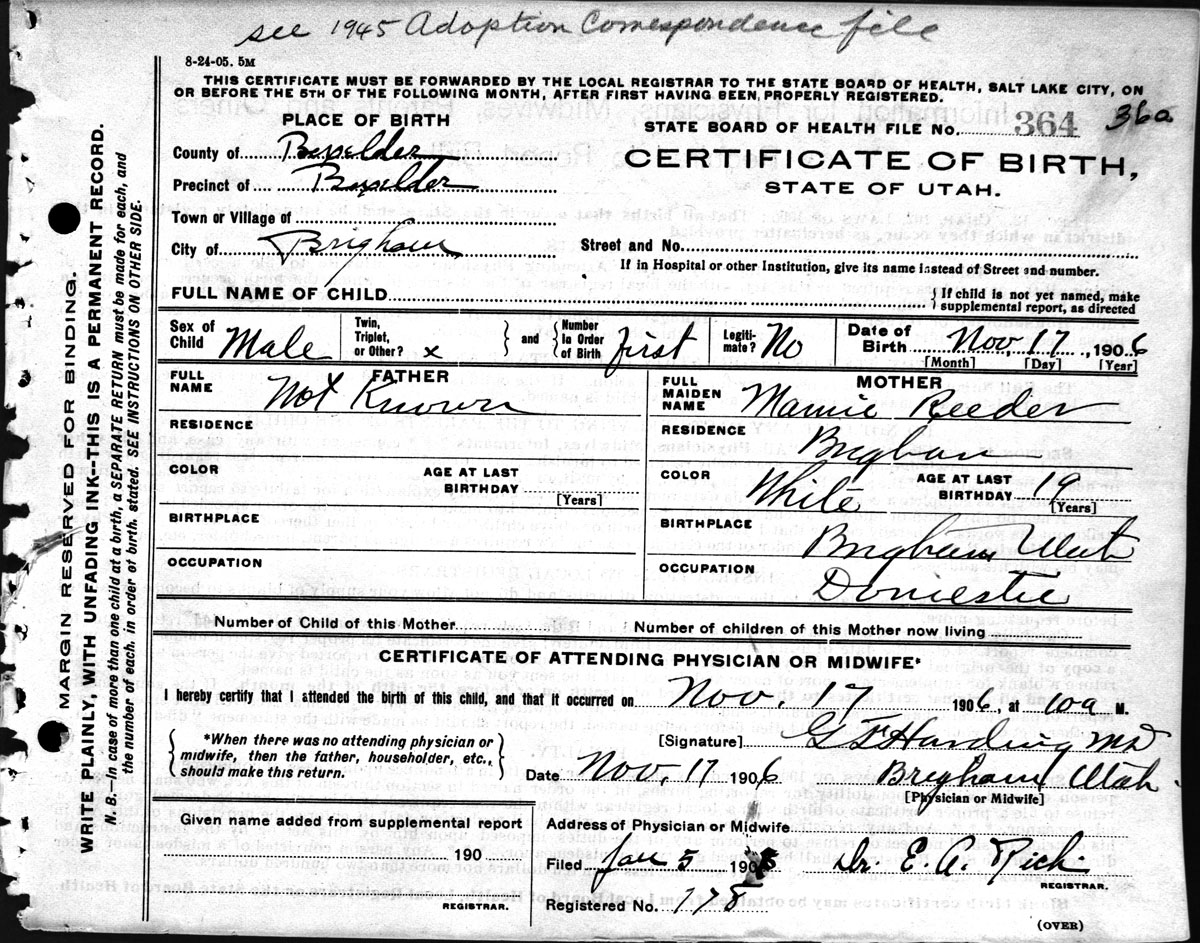 see 1945 Adoption Correspondence file
8-24-05. 5M
THIS CERTIFICATE MUST BE FORWARDED BY THE LOCAL REGISTRAR TO THE STATE BOARD OF HEALTH, SALT LAKE CITY, ON
OR BEFORE THE 5TH OF THE FOLLOWING MONTH, AFTER FIRST HAVING BEEN, PROPERLY REGISTERED.
PLACE OF BIRTH
STATE BOARD OF HEALTH FILE No. 364 36a
County of Boxelder
CERTIFICATE OF BIRTH,
Precinct of Boxelder
STATE OF UTAH.
Town or Village of
City of Brigham
Street and No.
If in Hospital or other Institution, give its name instead of Street and number.
FULL NAME OF CHILD
{ If child is not yet named, make
supplemental report, as directed
Sex of Child Male
Twin, Triplet, or Other? x
} and { Number In Order of Birth first
Legiti-mate? No
Date of Birth Nov. 17, 1906
[Month] [Day] [Year]
FATHER
FULL NAME Not Known
RESIDENCE
COLOR
AGE AT LAST BIRTHDAY
[Years]
BIRTHPLACE
OCCUPATION
MOTHER
FULL MAIDEN NAME Mamie Reeder
RESIDENCE Brigham
COLOR White
AGE AT LAST BIRTHDAY 19
[Years]
BIRTHPLACE Brigham Utah
OCCUPATION Domestic
Number of Child of this Mother
Number of children of this Mother now living
CERTIFICATE OF ATTENDING PHYSICIAN OR MIDWIFE*
I hereby certify that I attended the birth of this child, and that it occurred on Nov. 17 1906, at 10a M.
{ *When there was no attending physician or
midwife, then the father, householder, etc.,
should make this return. }
[Signature] G F Harding MD
Date Nov. 17 1906 Brigham Utah
[Physician or Midwife]
Given name added from supplemental report
190
REGISTRAR.
Address of Physician or Midwife
Filed Jan 5 190
Dr. E. A. Rich
REGISTRAR.
Registered No. 178
(OVER)
MARGIN RESERVED FOR BINDING.
WRITE PLAINLY, WITH UNFADING INK--THIS IS A PERMANENT RECORD.
N. B.--In case of more than one child at a birth, a SEPARATE RETURN must be made for each, and
the number of each, in order of birth, stated. SEE INSTRUCTIONS ON OTHER SIDE.